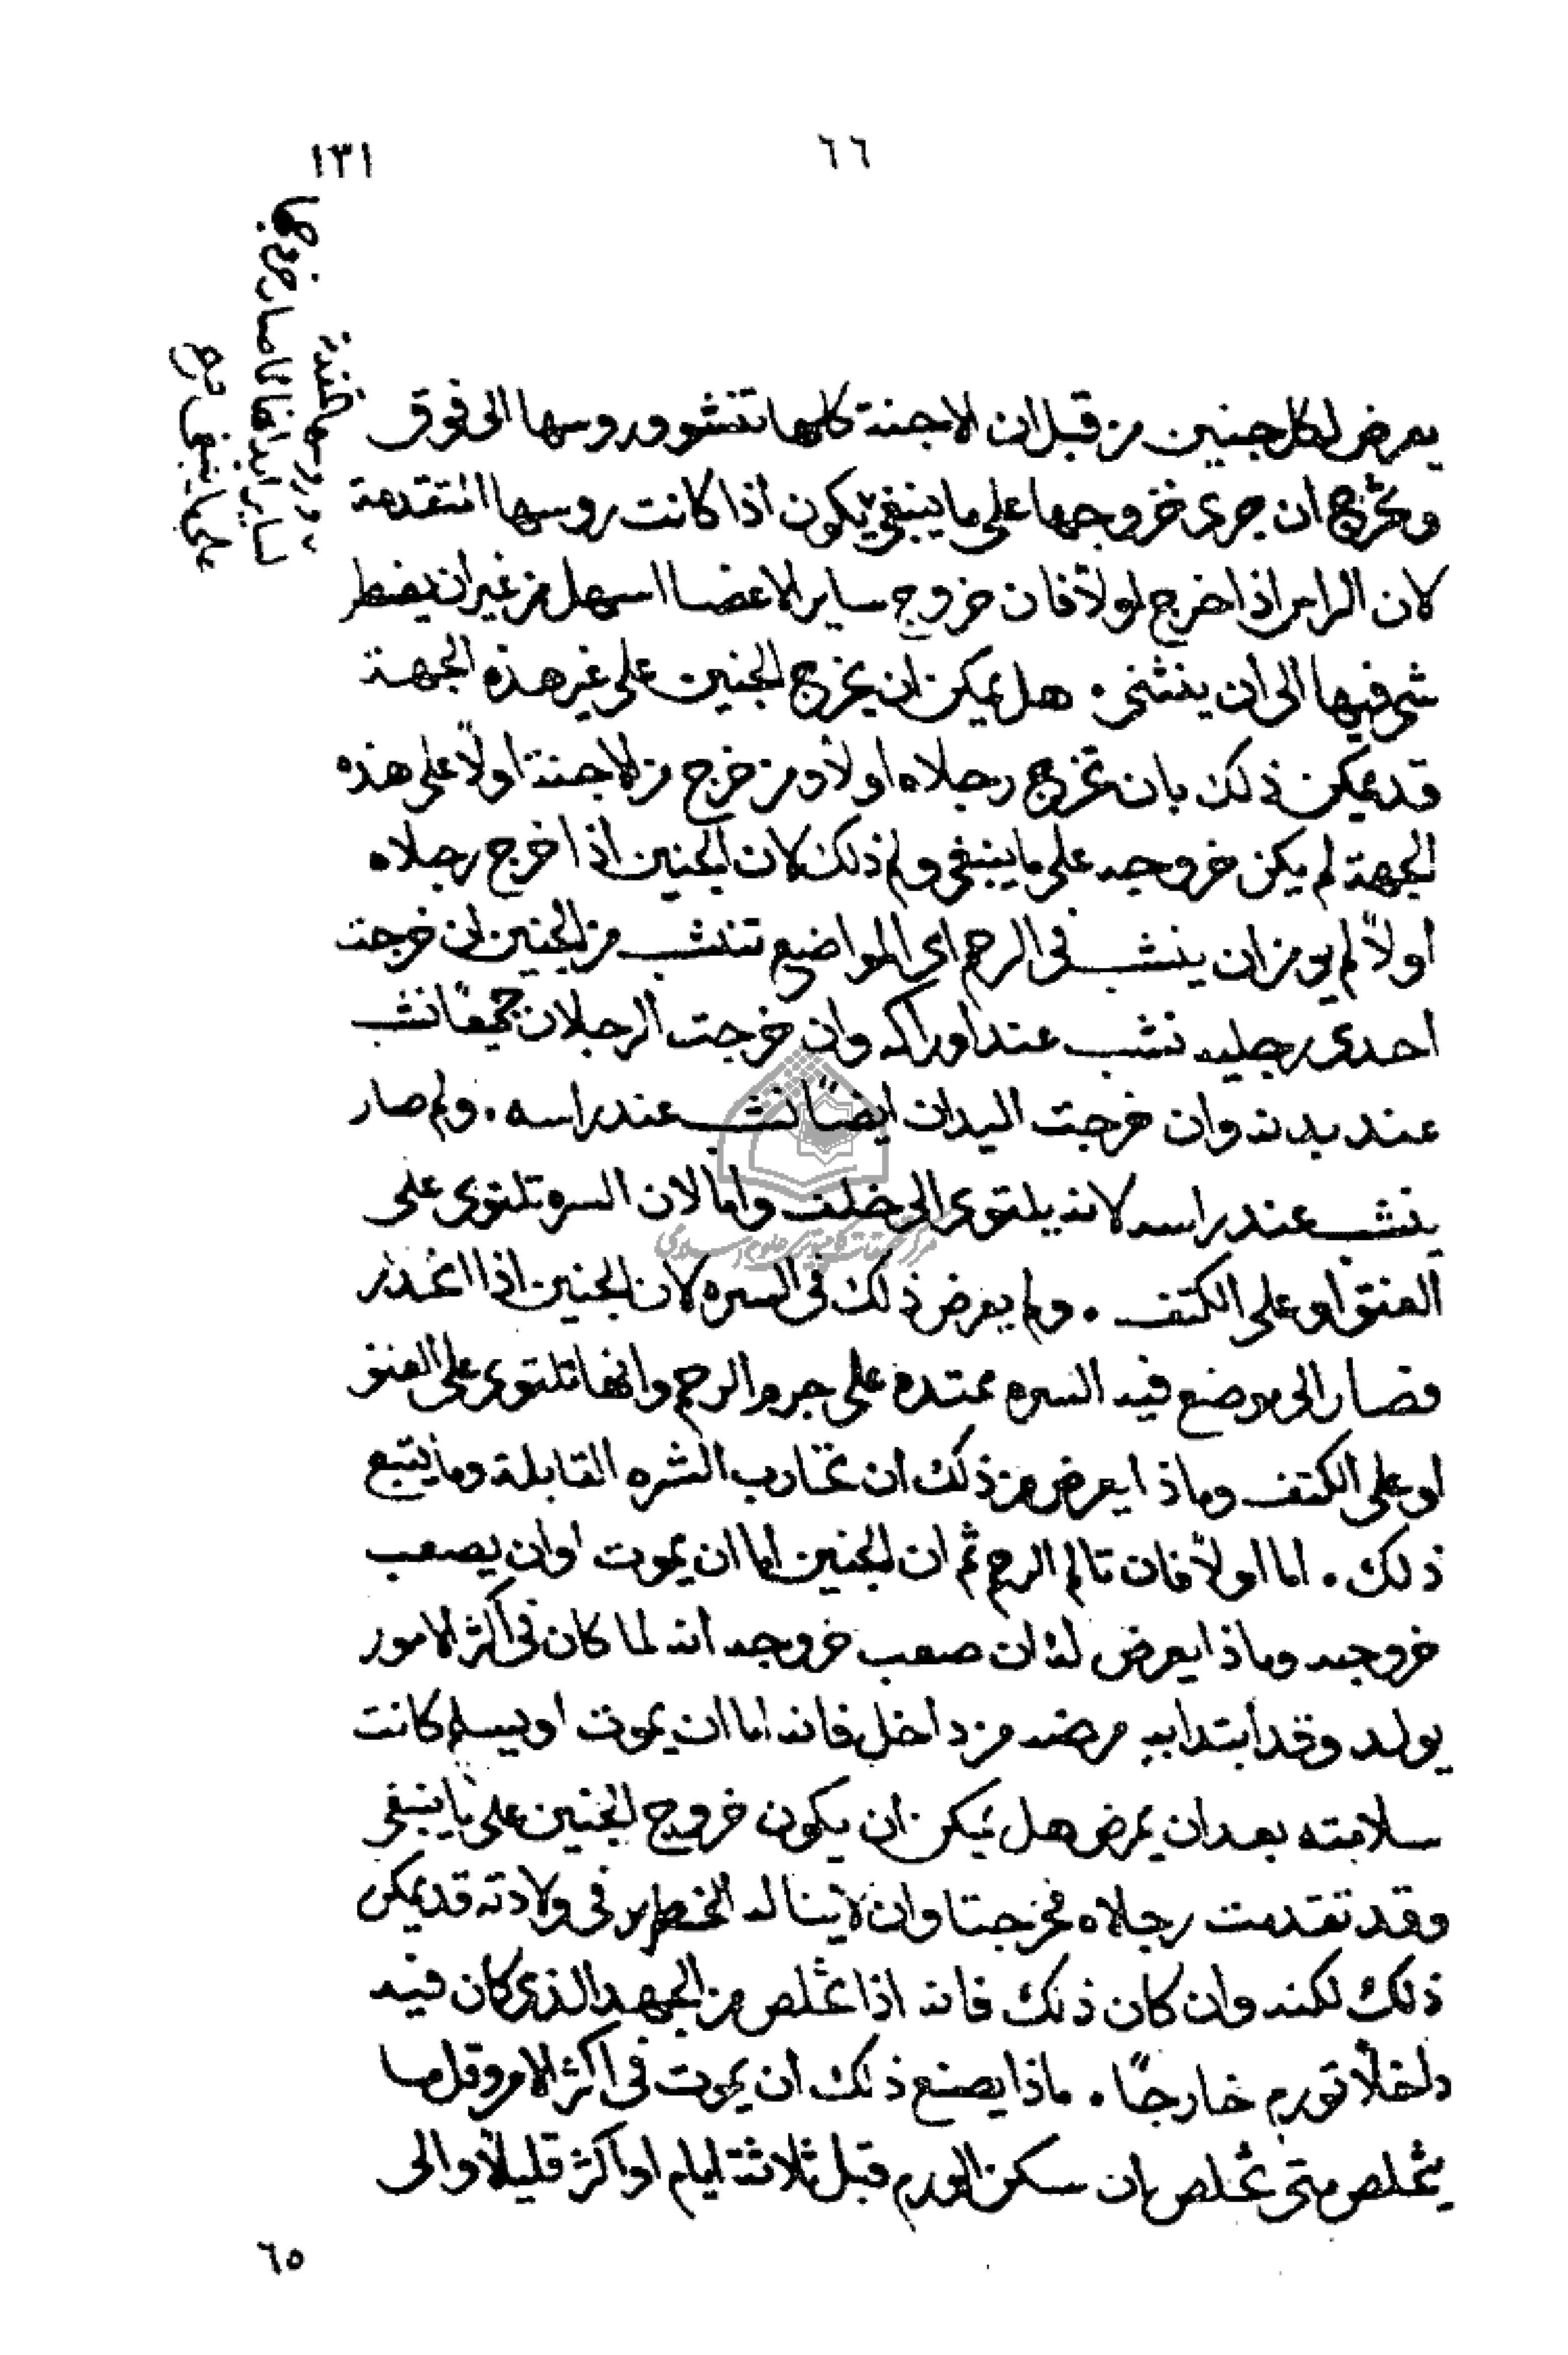 ٦٦
١٣١
يعرض لكل جنين من قبل ان الاجنة كلها تنشو وروسها الى فوق
وتخرج ان جرى خروجها على ما ينبغي يكون اذا كانت روسها المتقدمة
لان الراس اذا خرج اولاً فان خروج ساير الاعضا اسهل من غير ان يضطر
شى فيها الى ان ينثنى . هل يمكن ان يخرج الجنين على غير هذه الجهة
قد يمكن ذلك بان تخرج رجلاه اولاً ومن خرج من الاجنة اولاً على هذه
الجهة لم يكن خروجه على ما ينبغي ولم ذلك لان الجنين اذا خرج رجلاه
اولاً لم يومن ان ينشب فى الرحم اى المواضع تنشب من الجنين ان خرجت
احدى رجليه نشب عند اوراكه وان خرجت الرجلان جميعًا نشب
عند يديه وان خرجت اليدان ايضًا نشب عند راسه . ولم صار
ينشب عند راسه لانه يلتوى الى خلف واما لان السره تلتوى على
العنق او على الكتف . ولم يعرض ذلك فى السره لان الجنين اذا انحدر
فصار الى موضع فيه السره ممتده على جرم الرحم وانها تلتوى على العنق
او على الكتف وماذا يعرض من ذلك ان تحارب السره القابلة وما يتبع
ذلك . اما اولاً فان تالم الرحم ثم ان الجنين اما ان يموت او ان يصعب
خروجه وماذا يعرض له ان صعب خروجه انه لما كان فى اكثر الامور
يولد وقد ابتدا به مرضه من داخل فانه اما ان يموت او يسلم كانت
سلامته بعد ان يمرض هل يمكن ان يكون خروج الجنين على ما ينبغي
وقد تقدمت رجلاه فخرجتا وان لا يناله الخطر فى ولادته قد يمكن
ذلك لكنه وان كان ذلك فانه اذا تخلص من الجهد الذى كان فيه
داخلاً تورم خارجًا . ماذا يصنع ذلك ان يموت فى اكثر الامر وقل ما
يتخلص متى تخلص ان سكن الورم قبل ثلاثة ايام او اكثر قليلاً والى
٦٥